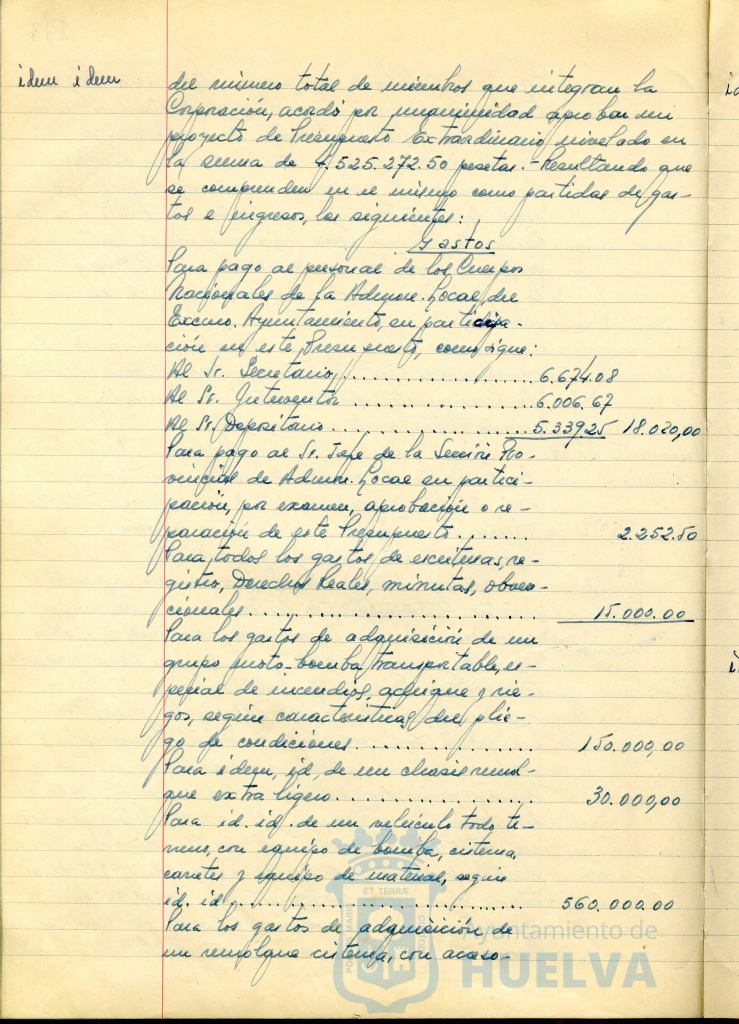 idem idem
del número total de miembros que integran la
Corporación, acordó por unanimidad aprobar un
proyecto de Presupuesto Extraordinario nivelado en
la suma de 4.525.272.50 pesetas.- Resultando que
se comprenden en el mismo como partidas de gas-
tos e ingresos, los siguientes:
Gastos
Para pago al personal de los Cuerpos
Nacionales de la Admon. Local, del
Excmo. Ayuntamiento, en participa-
ción en este Presupuesto, como sigue:
Al Sr. Secretario..................6.674.08
Al Sr. Interventor..................6.006.67
Al Sr. Depositario..................5.339.25 18.020,00
Para pago al Sr. Jefe de la Sección Pro-
vincial de Admon. Local en partici-
pación, por examen, aprobación o re-
paración de este Presupuesto....... 2.252.50
Para todos los gastos de escrituras, re-
gistro, Derechos Reales, minutas, obven-
cionales..................... 15.000.00
Para los gastos de adquisición de un
grupo moto-bomba transportable, es-
pecial de incendios, achique y rie-
gos, según características del plie-
go de condiciones............... 150.000,00
Para idem, id, de un chasis remol-
que extra ligero................. 30.000,00
Para id. id. de un vehículo todo te-
rreno, con equipo de bomba, cisterna,
carretes y equipo de material, según
id. id......................... 560.000.00
Para los gastos de adquisición de
un remolque cisterna, con acceso-
ET TERRÆ
Ayuntamiento de
HUELVA